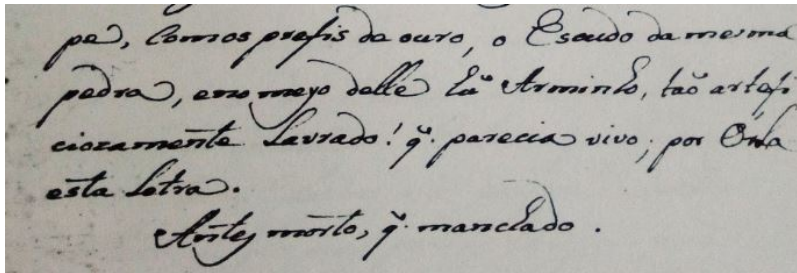 pe, Comos prefis de ouro, o Escudo da mesma
pedra, eno meyo delle hũ Arminho, taõ artefi
ciozamente Lavrado! q̃. parecia vivo; por Orla
esta Letra.
Antes morto, q̃. manchado.